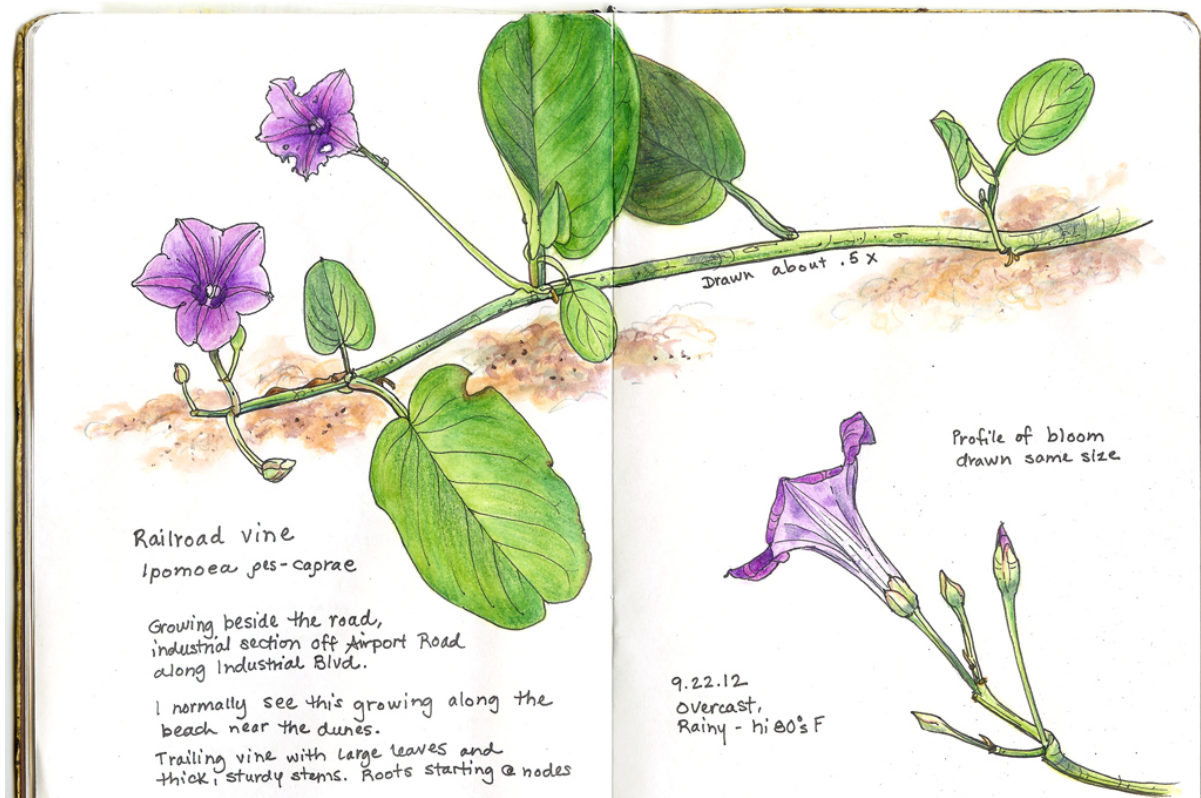 Drawn about .5 x
Railroad vine
Ipomoea pes-caprae
Growing beside the road,
industrial section off Airport Road
along Industrial Blvd.
I normally see this growing along the
beach near the dunes.
Trailing vine with large leaves and
thick, sturdy stems. Roots starting @ nodes
Profile of bloom
drawn same size
9.22.12
Overcast,
Rainy - hi 80's F